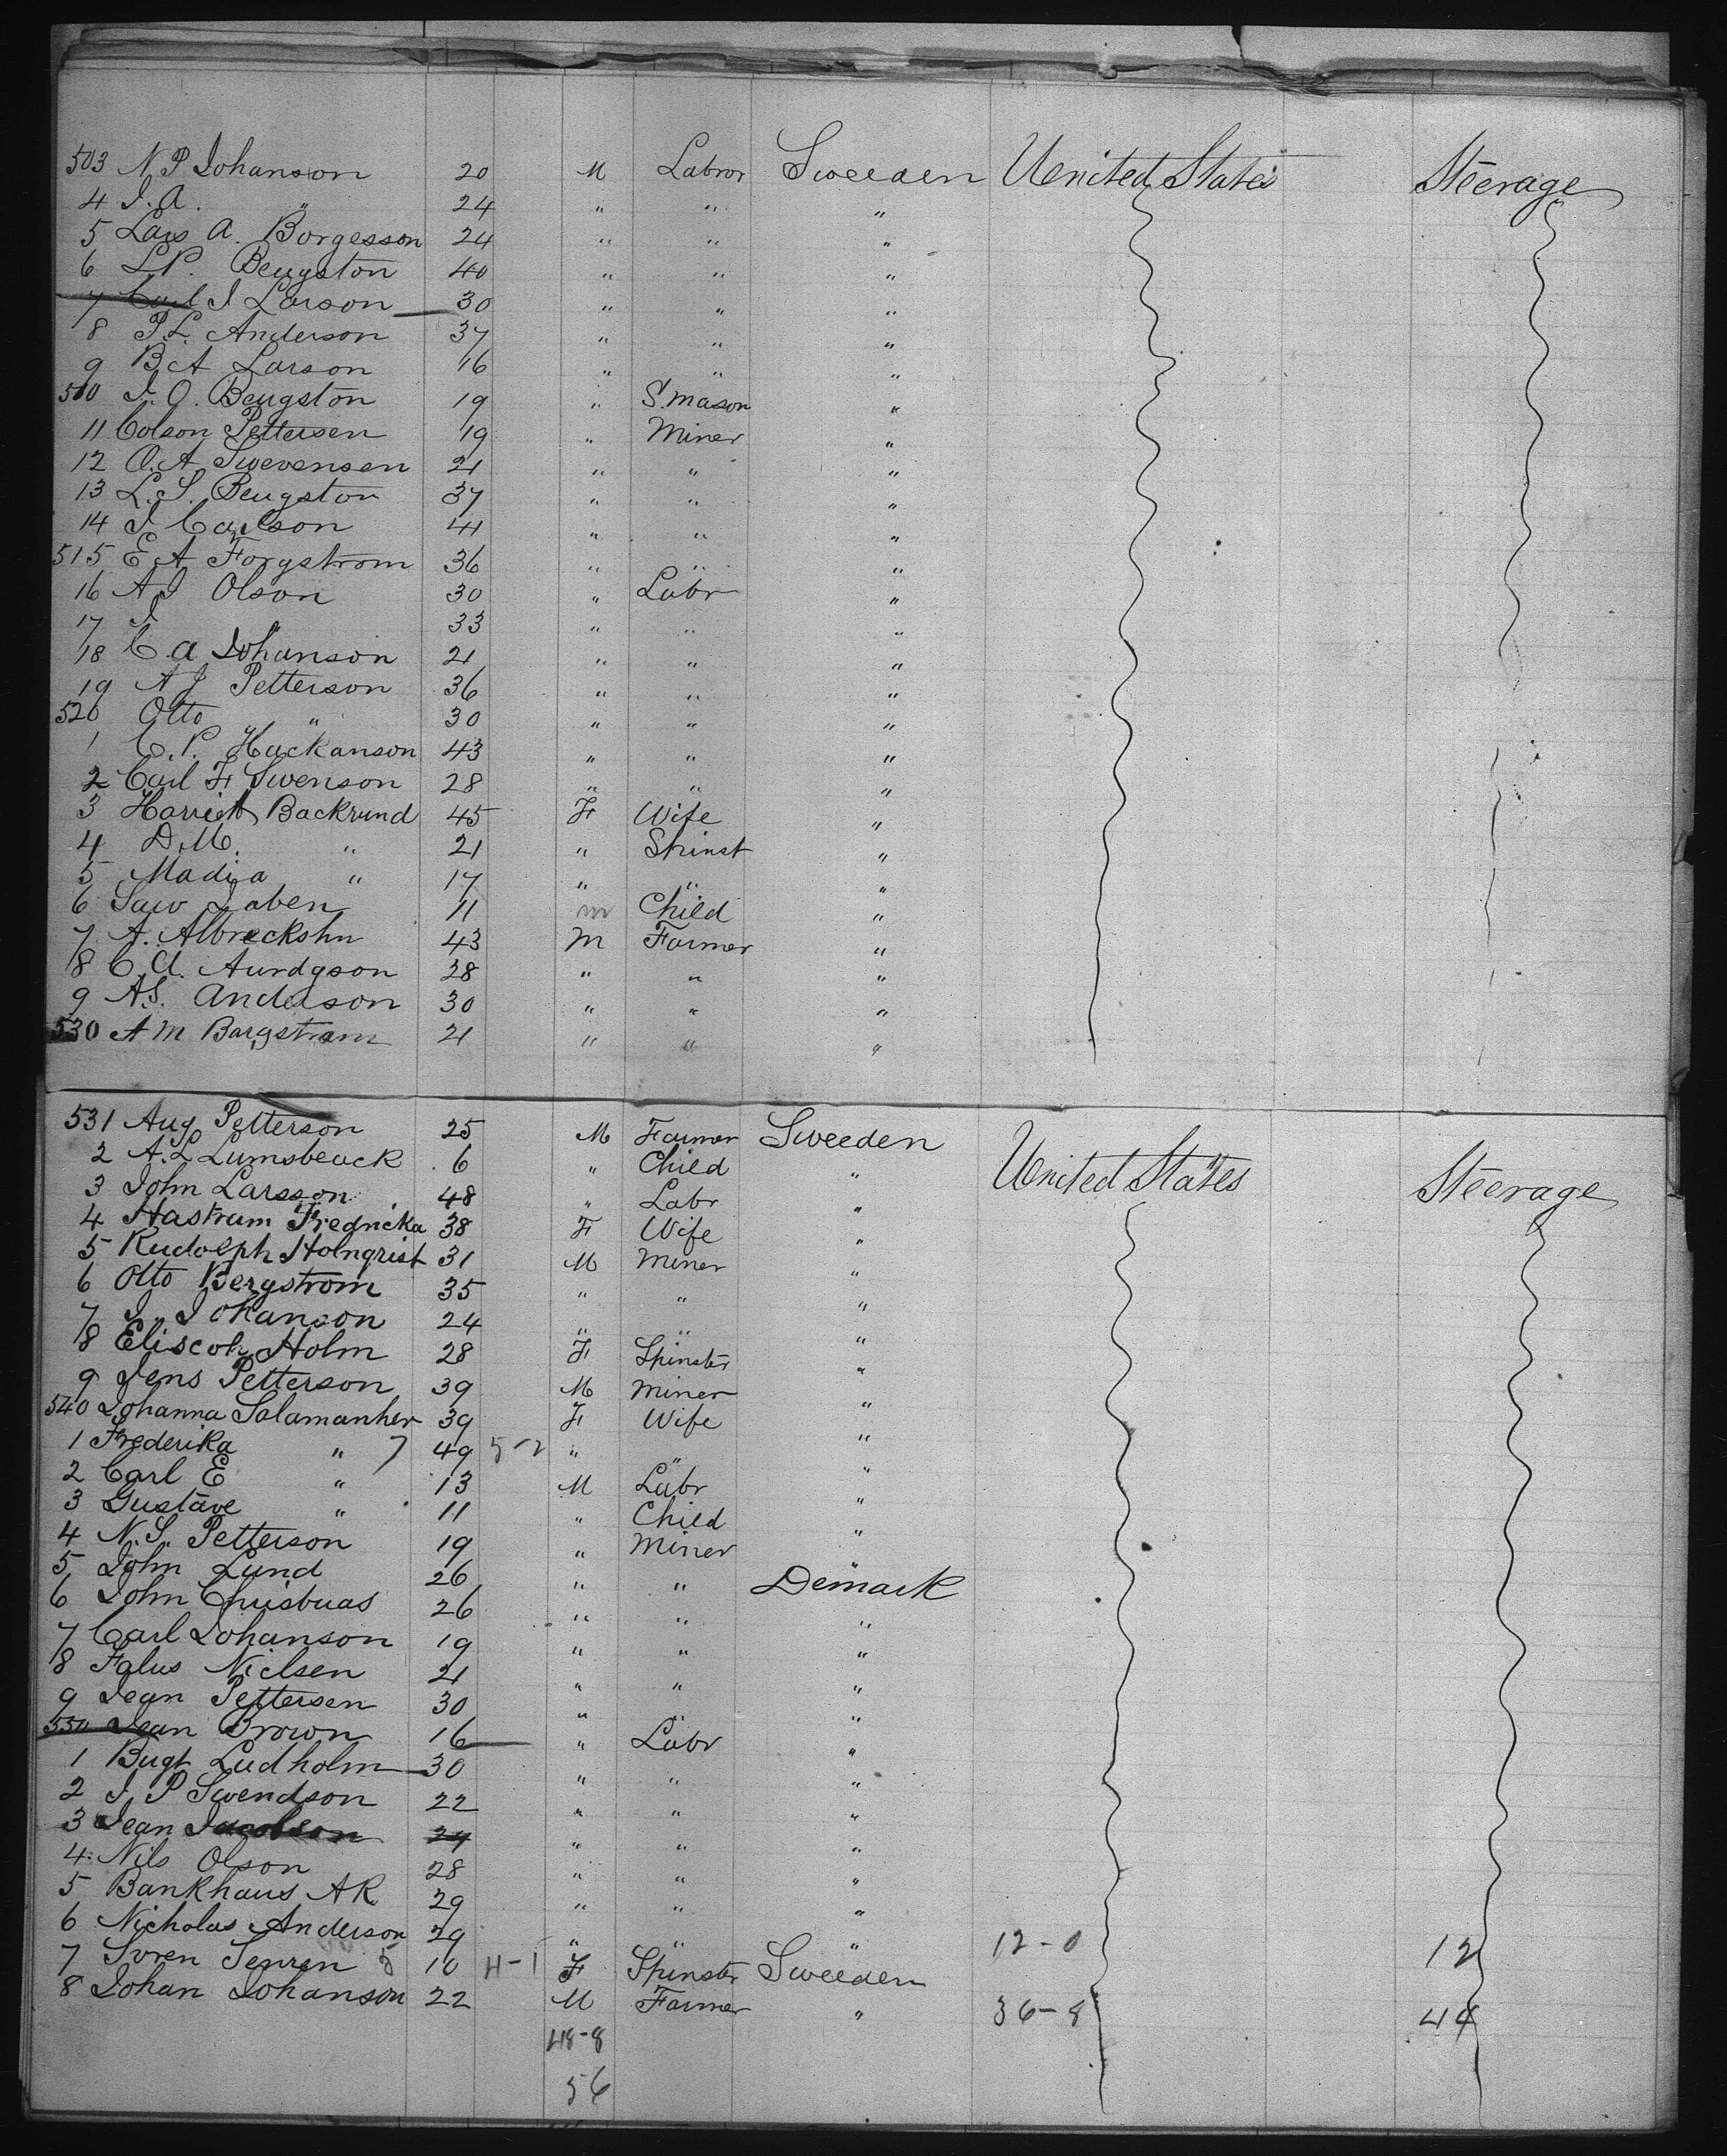 503 N. P Johanson 20 M Labror Sweeden United States Steerage
4 J. A. " 24 " " "
5 Lars A. Borgesson 24 " " "
6 L P. Bengston 40 " " "
7 Carl J Larson 30 " " "
8 P. L. Anderson 37 " " "
9 B A Larson 16 " " "
510 J. O. Bengston 19 " S. mason "
11 Colson Pettersen 19 " Miner "
12 O. A. Swevensen 21 " " "
13 L. S. Bengston 37 " " "
14 J Carlson 41 " " "
515 E A Forgstrom 36 " " "
16 A J Olson 30 " Labr "
17 J " 33 " " "
18 C. a Johanson 21 " " "
19 A J Petterson 36 " " "
520 Otto " 30 " " "
1 C. P. Hackanson 43 " " "
2 Carl F Swenson 28 " " "
3 Harriet Backrund 45 F Wife "
4 D. M. " 21 " Spinst "
5 Madia " 17 " " "
6 Saw Jaben 11 m Child "
7 A. Albreckshn 43 M Farmer "
8 C. A. Aurdgson 28 " " "
9 A. S. Anderson 30 " " "
530 A M Bargstram 21 " " "
531 Aug Petterson 25 M Farmer Sweeden United States Steerage
2 A. L Lumsbeack 6 " Child "
3 John Larsson 48 " Labr "
4 Hastrum Fredricka 38 F Wife "
5 Rudolph Holnqrist 31 M Miner "
6 Otto Bergstrom 35 " " "
7 J. Johanson 24 " " "
8 Holm 28 F Spinster "
9 Jens Petterson 39 M Miner "
540 Johanna Salamanher 39 F Wife "
1 Frederika " 7 49 5-2 " " "
2 Carl E " 13 M Labr "
3 Gustave " 11 " Child "
4 N. S. Petterson 19 " Miner "
5 John Lund 26 " " Demark
6 John Chrisbuas 26 " " "
7 Carl Johanson 19 " " "
8 Falus Nielsen 21 " " "
9 Jean Pettersen 30 " " "
550 Jean Brown 16 " Labr "
1 Bugt Ludholm 30 " " "
2 J P Swendson 22 " " "
3 Jean Jacobson 24 " " "
4 Nils Olson 28 " " "
5 Bankhaus A R 29 " " "
6 Nicholas Anderson 29 " " " 12-0 12
7 Soren Senren 5 10 4-1 F Spinster Sweeden
8 Johan Johanson 22 M Farmer " 36-8 44
48-8
56